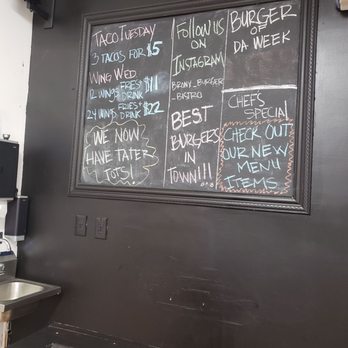 TACO TUESDAY
3 TACOS FOR $5
WING WED
12 WINGS FRIES DRINK $11
24 WINGS FRIES DRINK $22
WE NOW
HAVE TATER
TOTS!
FOLLOW US
ON
INSTAGRAM
BRONX_BURGER
_BISTRO
BEST
BURGERS
IN
TOWN!!!
BURGER OF
DA WEEK
CHEFS
SPECIAL
CHECK OUT
OUR NEW
MENU
ITEMS